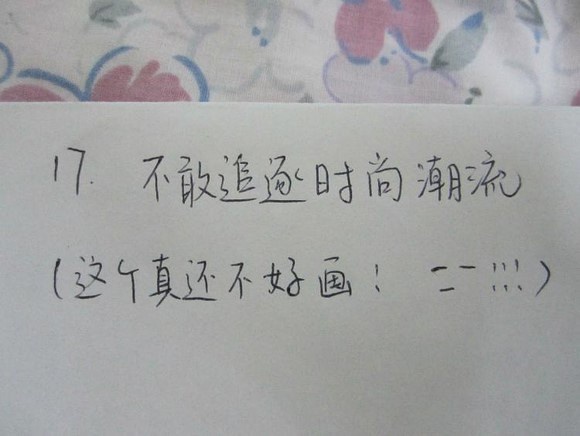 17. 不敢追逐时尚潮流
(这个真还不好画! 二一!!!)